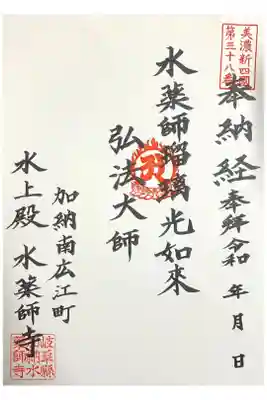 美濃新四國
第三十八番
奉納経
奉拜令和 年 月 日
水薬師瑠璃光如来
弘法大師
加納南広江町
水上殿 水薬師寺
岐阜縣
加納水
薬師寺